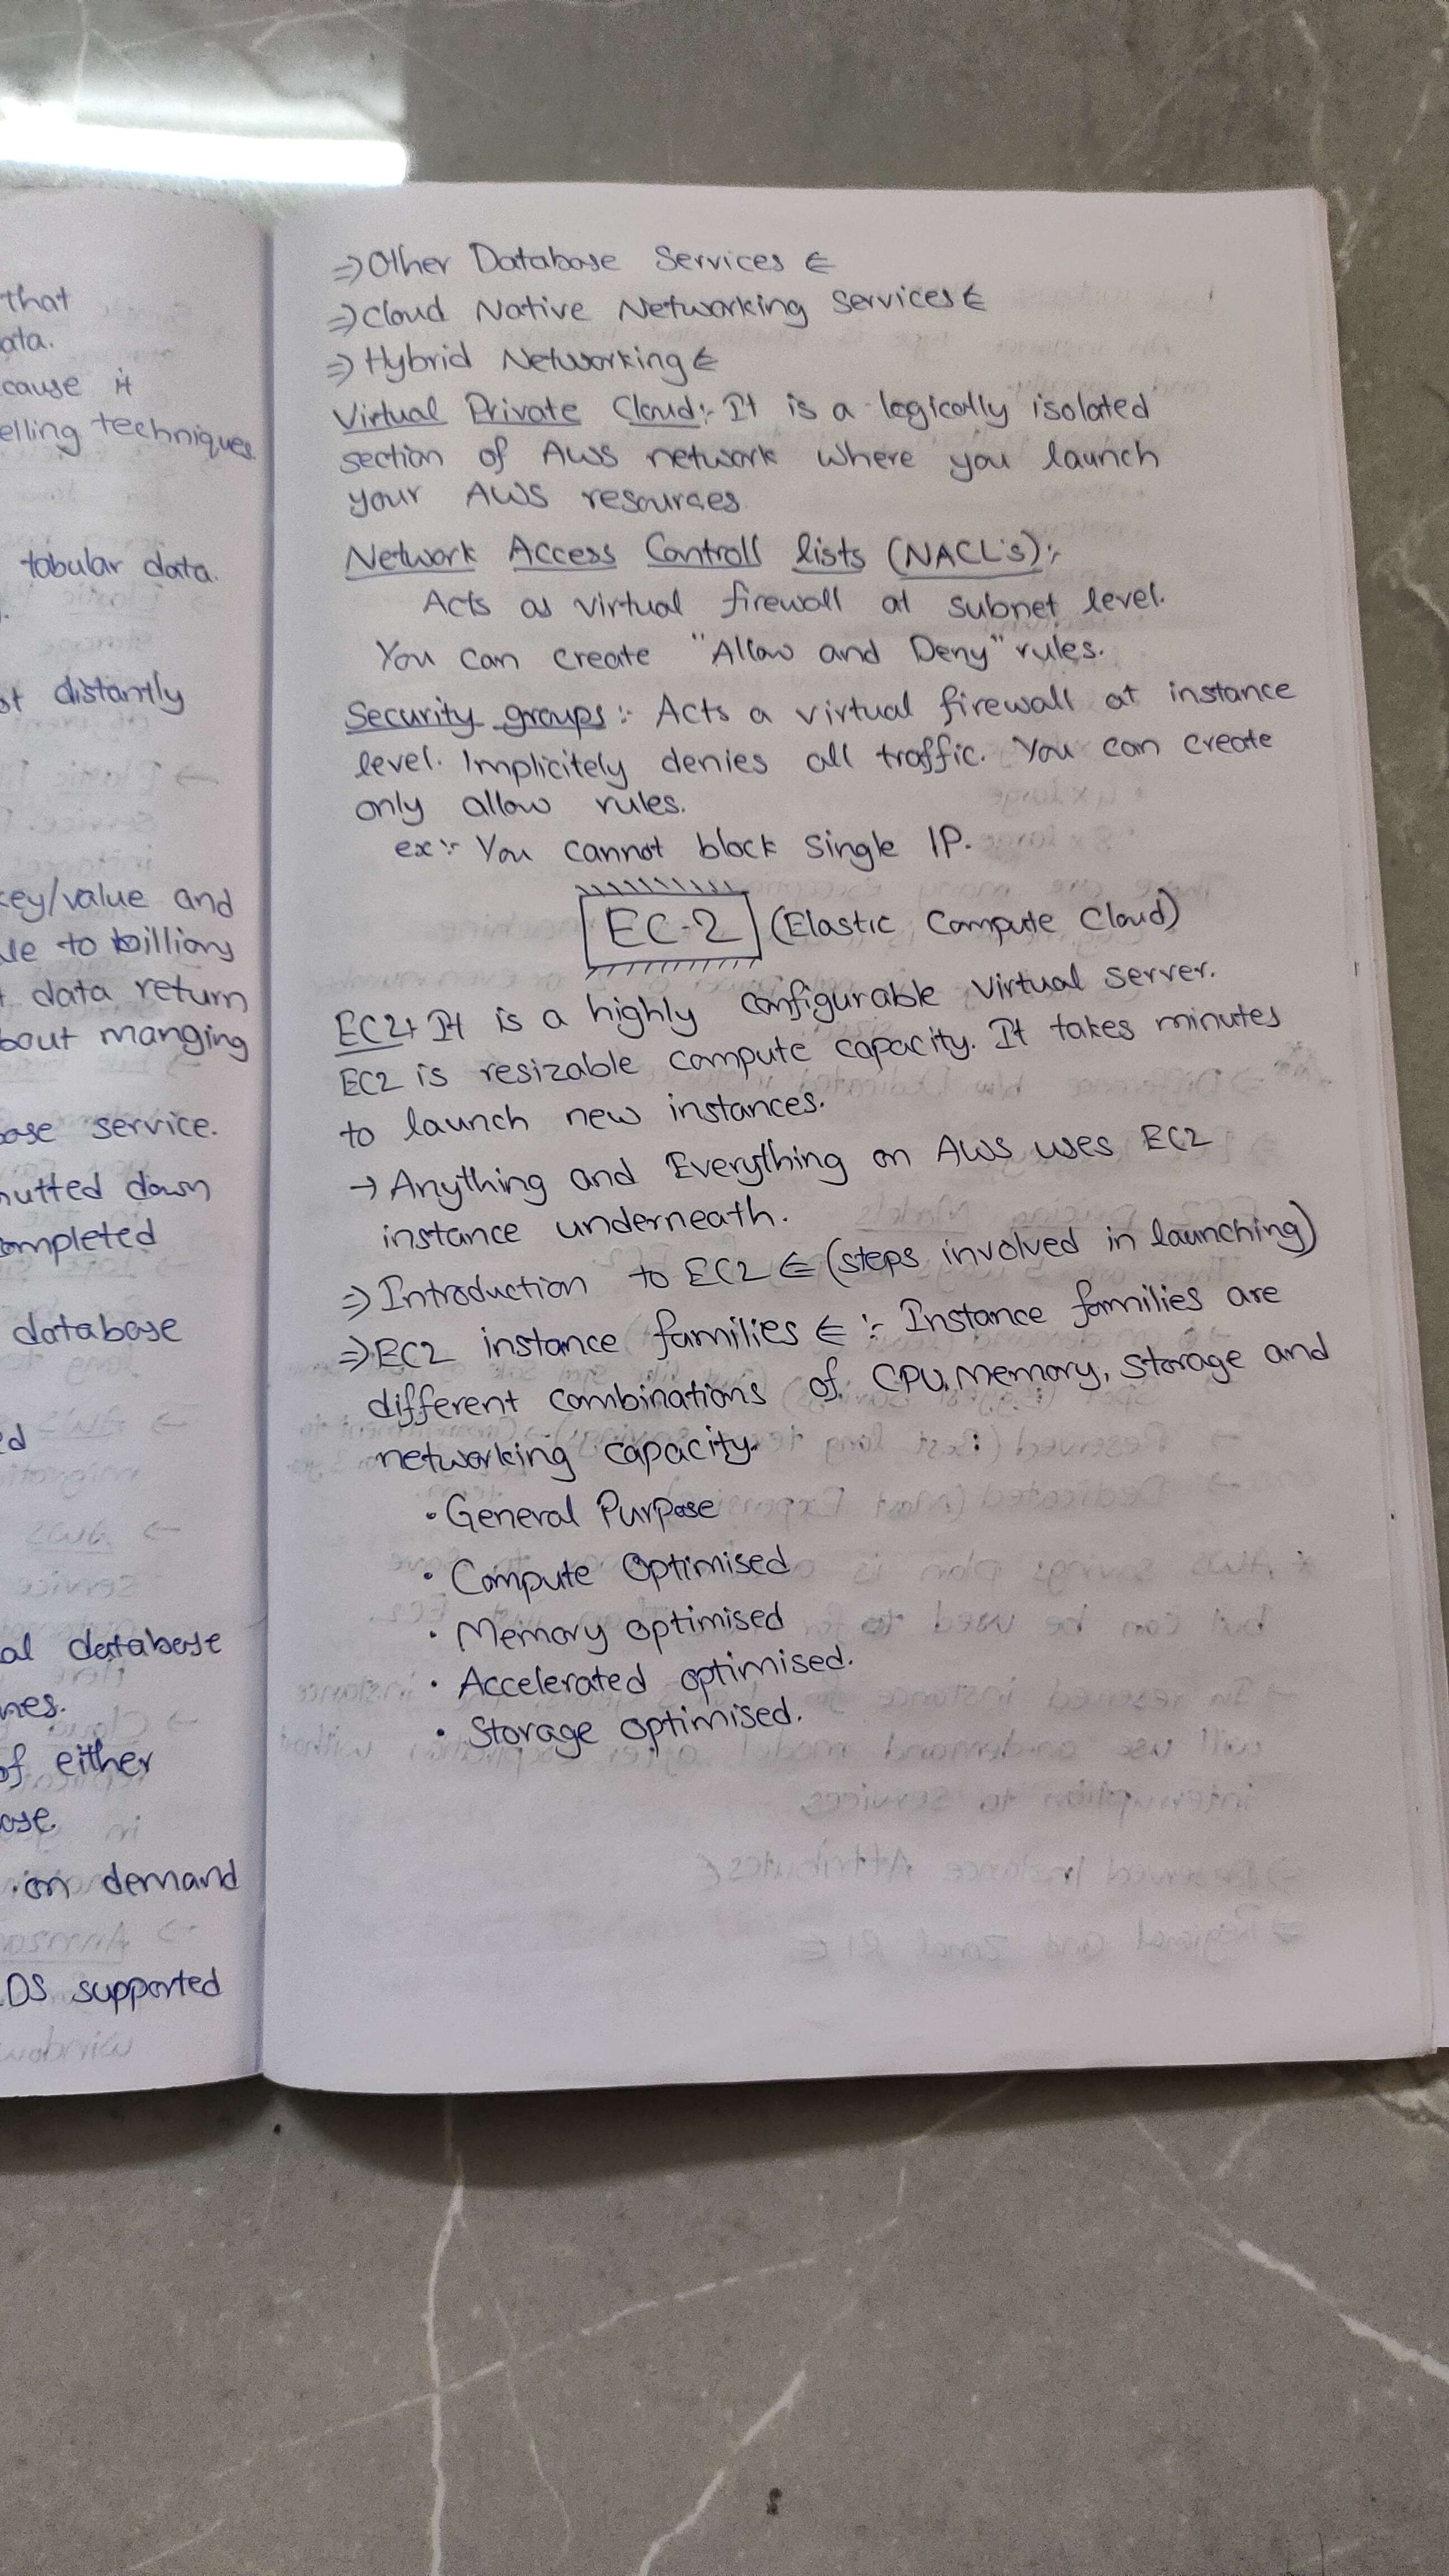 that
ata.
cause it
elling techniques
tabular data.
st distantly
key/value and
le to billions
data return
bout manging
ase service.
hutted down
ompleted
database
ed
al database
nes.
of either
ase.
on demand
DS supported
⇒ Other Database Services ⋲
⇒ Cloud Native Networking Services ⋲
⇒ Hybrid Networking ⋲
Virtual Private Cloud:- It is a logically isolated
section of AWS network where you launch
your AWS resources.
Network Access Controll lists (NACL's):-
Acts as virtual firewall at subnet level.
You can create "Allow and Deny" rules.
Security groups:- Acts a virtual firewall at instance
level. Implicitely denies all traffic. You can create
only allow rules.
ex:- You cannot block single IP.
EC-2 (Elastic Compute Cloud)
EC2:- It is a highly configurable virtual server.
EC2 is resizable compute capacity. It takes minutes
to launch new instances.
→ Anything and Everything on AWS uses EC2
instance underneath.
⇒ Introduction to EC2 ⋲ (steps involved in launching)
⇒ EC2 instance families ⋲ :- Instance families are
different combinations of CPU, Memory, Storage and
networking capacity.
• General Purpose
• Compute Optimised
• Memory optimised
• Accelerated optimised.
• Storage optimised.